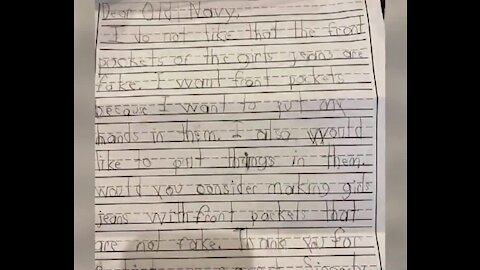 Dear Old Navy,
I do not like that the front
pockets of the girls jeans are
fake. I want front pockets
because I want to put my
hands in them. I also would
like to put things in them.
would you consider making girls
jeans with front pockets that
are not fake. Thank you for